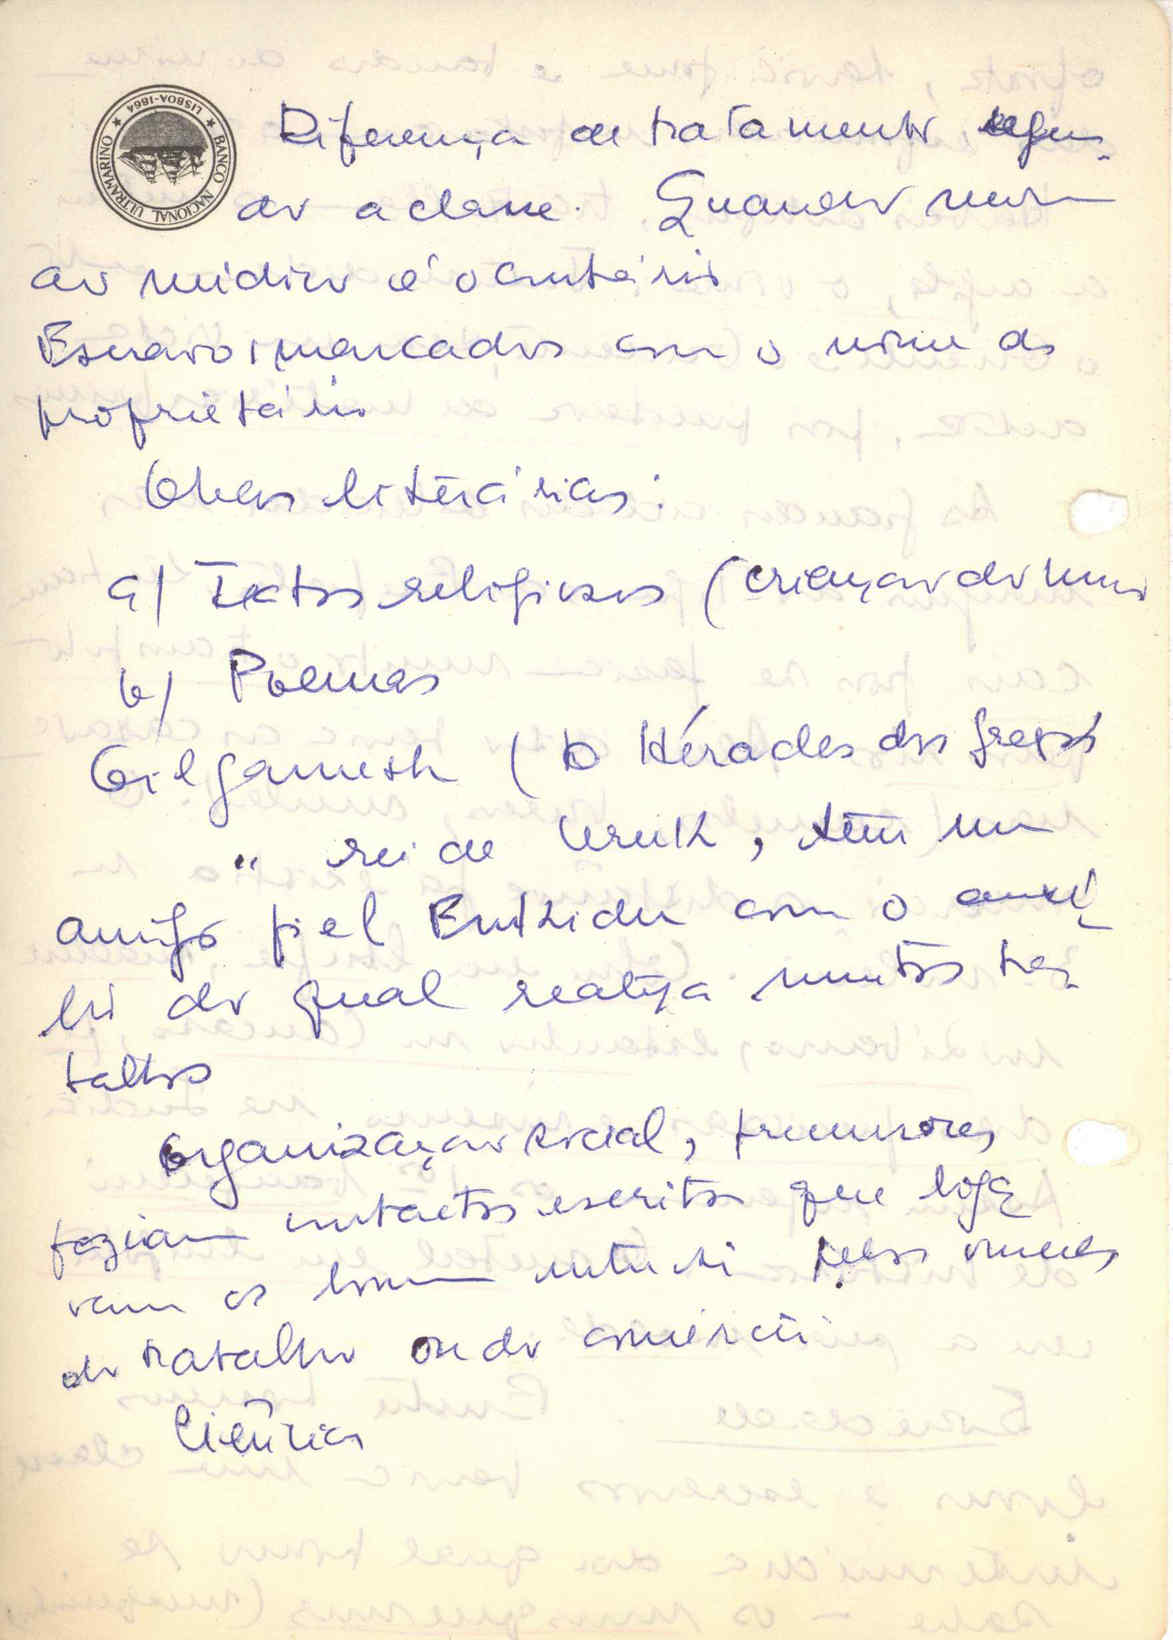 BANCO NACIONAL ULTRAMARINO
LISBOA-1864
Diferença de tratamento segun-
do a classe. Quando
ao médico é o contrário
Escravos marcados com o nome do
proprietário
Obras literárias:
a) Textos religiosos (criação do mun
b) Poemas
Gilgamesh (o Héracles dos gregos
" rei de Uruk, tem um
amigo fiel Enkidu com o auxí-
lio do qual realiza muitos tra-
balhos
Organização social, precursores
faziam contactos escritos que liga
vam os homens entre si pelos
do trabalho ou do comércio
Ciência